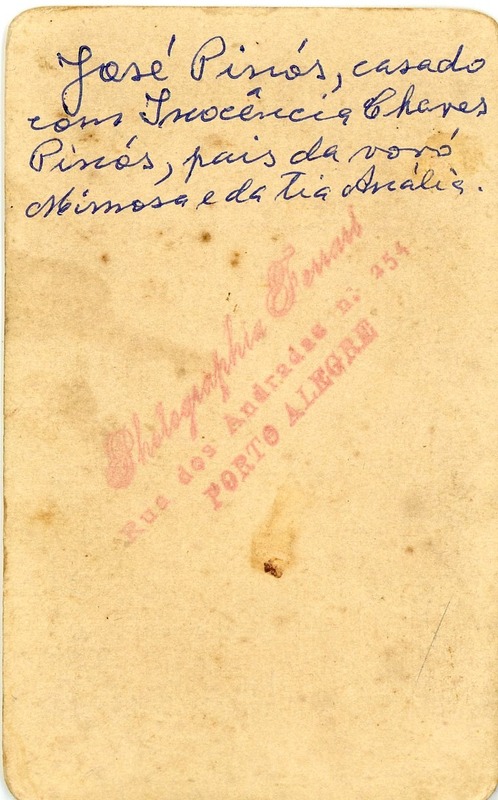 José Pinós, casado
com Inocência Chaves
Pinós, pais da vovó
Mimosa e da tia Anália.
Photographia Ferrari
Rua dos Andradas n. 254
PORTO ALEGRE